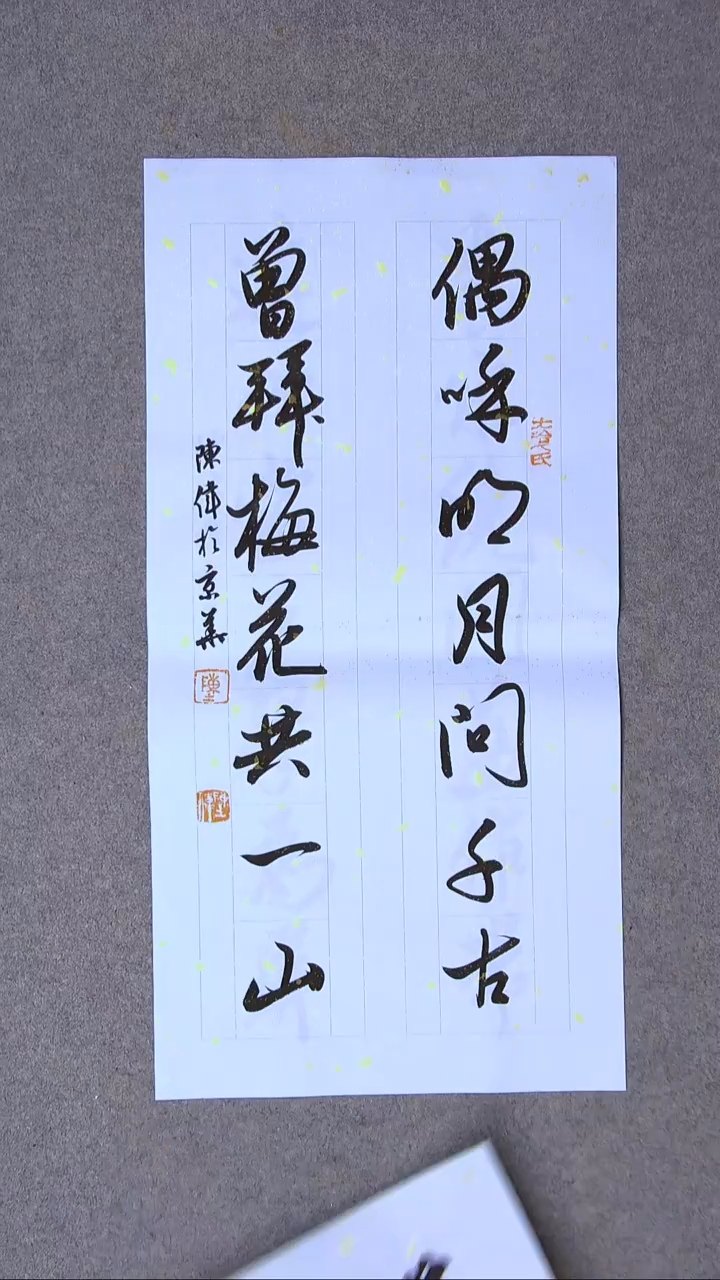 偶咏明月问千古
曾拜梅花共一山
陳偉於京華